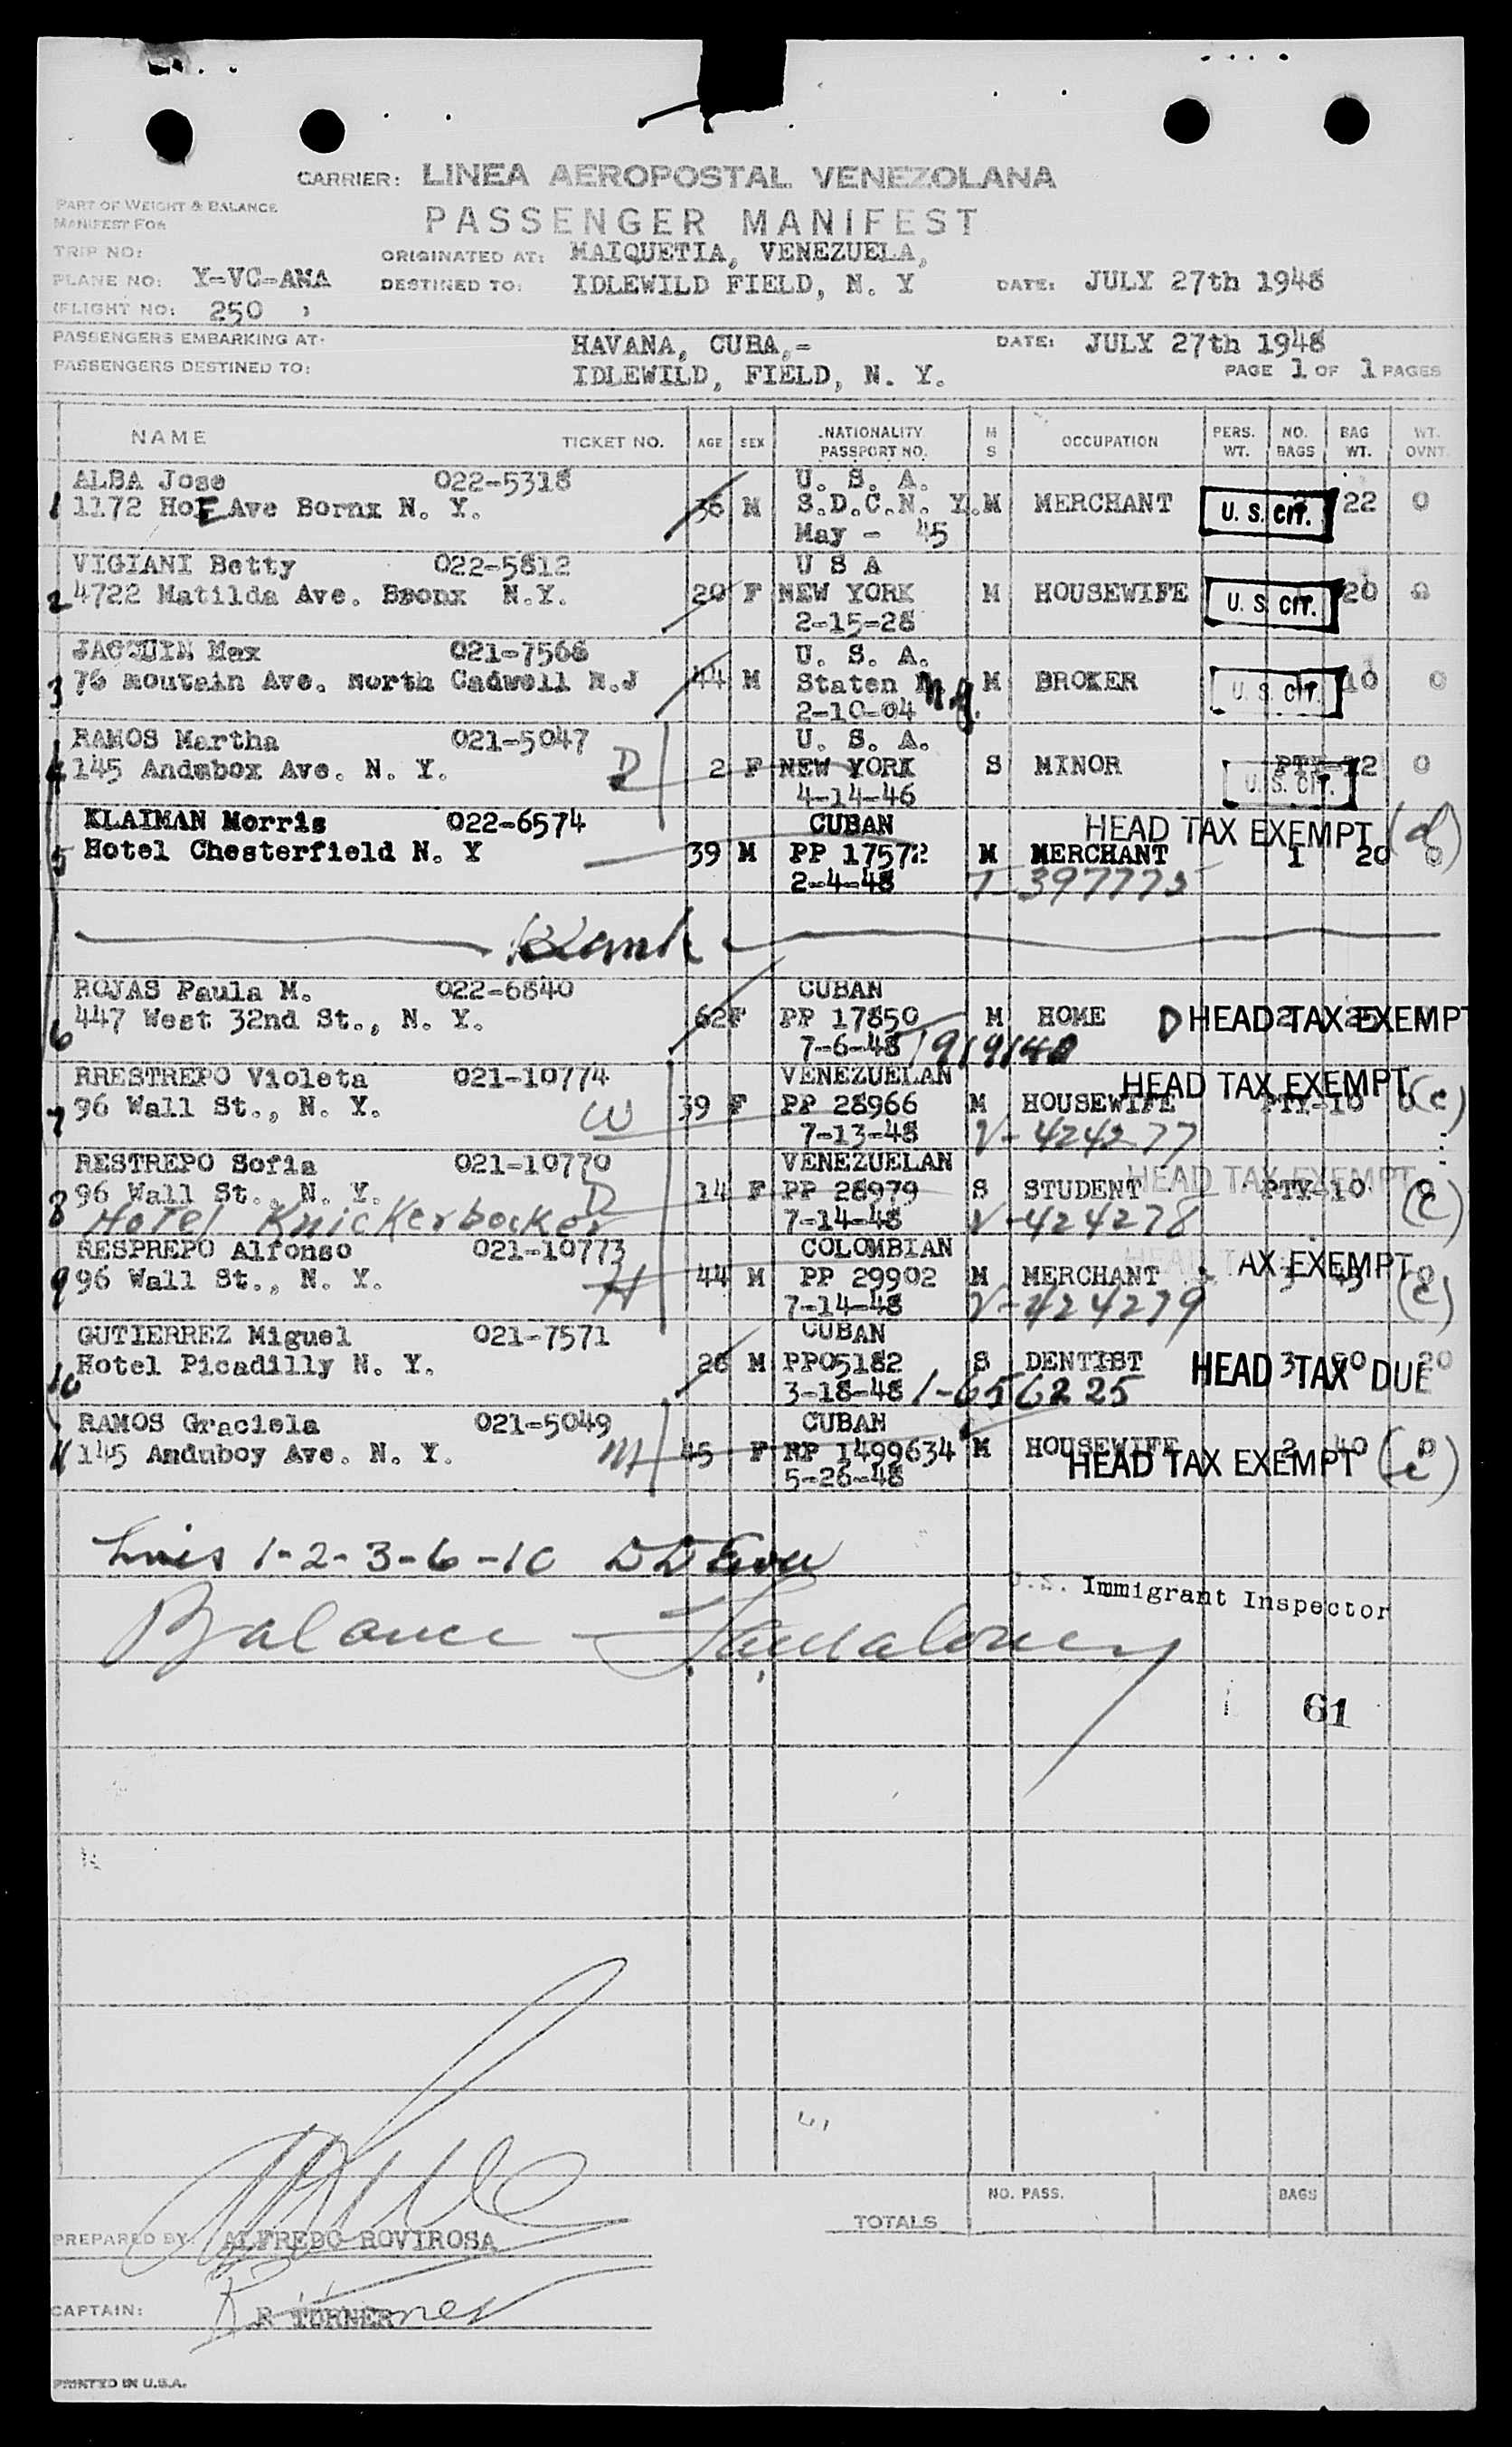 CARRIER: LINEA AEROPOSTAL VENEZOLANA
PART OF WEIGHT & BALANCE
MANIFEST FOR
PASSENGER MANIFEST
TRIP NO: ORIGINATED AT: MAIQUETIA, VENEZUELA,
PLANE NO: Y-VC-AMA DESTINED TO: IDLEWILD FIELD, N. Y DATE: JULY 27th 1948
(FLIGHT NO: 250 )
PASSENGERS EMBARKING AT: HAVANA, CUBA,- DATE: JULY 27th 1948
PASSENGERS DESTINED TO: IDLEWILD, FIELD, N. Y. PAGE 1 OF 1 PAGES
NAME TICKET NO. AGE SEX NATIONALITY PASSPORT NO. M S OCCUPATION PERS. WT. NO. BAGS BAG WT. WT. OVNT.
ALBA Jose 022-5318 U. S. A.
1 1172 HoE Ave Bornx N. Y. 36 M S.D.C.N. Y. M MERCHANT U. S. CIT. 22 0
May - 45
VIGIANI Betty 022-5812 U S A
2 4722 Matilda Ave. Bronx N.Y. 20 F NEW YORK M HOUSEWIFE U. S. CIT. 20 0
2-15-28
JACQUIN Max 021-7568 U. S. A.
3 76 moutain Ave. north Cadwell N.J 44 M Staten N.Y. M BROKER U. S. CIT. 10 0
2-10-04
RAMOS Martha 021-5047 U. S. A.
4 145 Andmbox Ave. N. Y. D 2 F NEW YORK S MINOR PTY-12 0
U. S. CIT.
4-14-46
KLAIMAN Morris 022-6574 CUBAN HEAD TAX EXEMPT (d)
5 Hotel Chesterfield N. Y 39 M PP 17572 M MERCHANT 1 20 0
2-4-48 T-397775
Blank
ROJAS Paula M. 022-6840 CUBAN
6 447 West 32nd St., N. Y. 62 F PP 17850 M HOME D HEAD TAX EXEMPT
7-6-48
RRESTREPO Violeta 021-10774 VENEZUELAN HEAD TAX EXEMPT (c)
7 96 Wall St., N. Y. W 39 F PP 28966 M HOUSEWIFE PTY-10 0
7-13-48 V-424277
RESTREPO Sofia 021-10770 VENEZUELAN HEAD TAX EXEMPT
8 96 Wall St., N. Y. D 14 F PP 28979 S STUDENT PTY-10 0 (c)
Hotel Knickerbocker 7-14-48 V-424278
RESPREPO Alfonso 021-10773 COLOMBIAN HEAD TAX EXEMPT
9 96 Wall St., N. Y. H 44 M PP 29902 M MERCHANT 3 45 0 (c)
7-14-48 V-424279
GUTIERREZ Miguel 021-7571 CUBAN
10 Hotel Picadilly N. Y. 26 M PP05182 S DENTIST HEAD TAX DUE 3 20
3-18-48 1-656225
RAMOS Graciela 021-5049 CUBAN
11 145 Anduboy Ave. N. Y. M 45 F RP 1499634 M HOUSEWIFE 2 40 0
HEAD TAX EXEMPT (c)
5-26-48
Lines 1-2-3-6-10
U.S. Immigrant Inspector
Balance
61
NO. PASS. BAGS
TOTALS
PREPARED BY: ALFREDO ROVIROSA
CAPTAIN: R TURNER
PRINTED IN U.S.A.